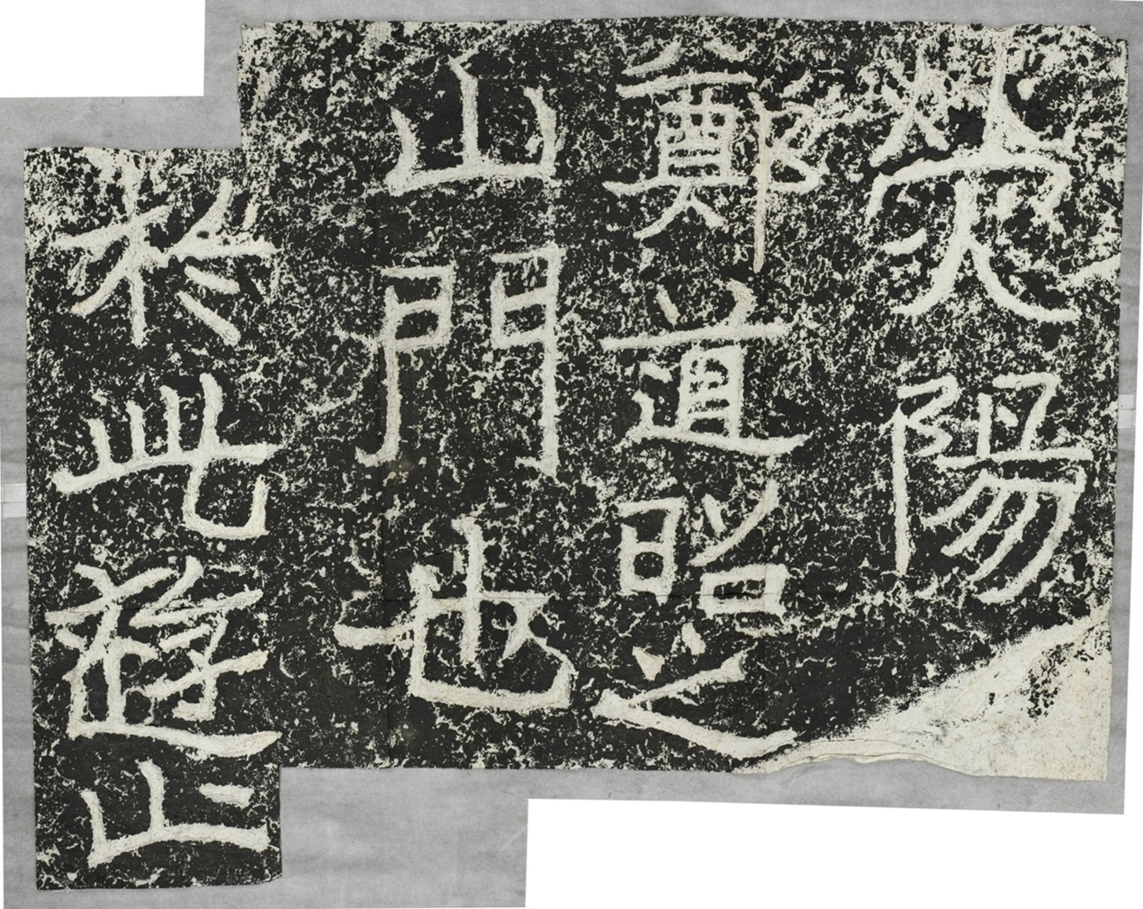 熒陽
鄭道昭之
山門也
於此遊止